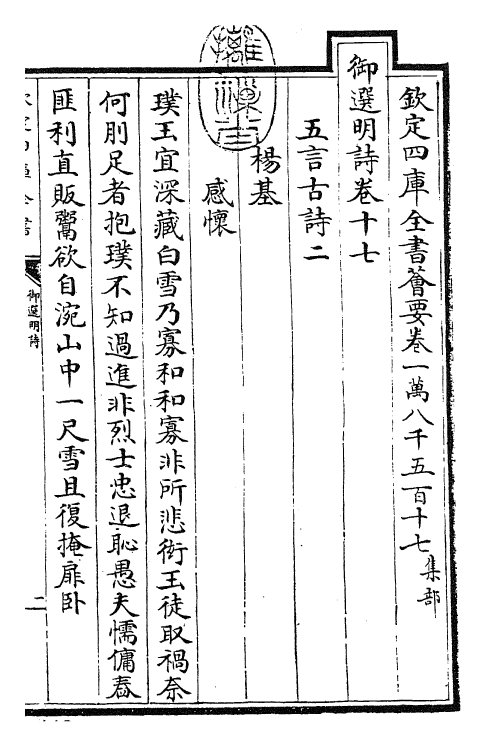 欽定四庫全書薈要卷一萬八千五百十七集部
御選明詩卷十七
五言古詩二
楊基
感懷
璞玉宜深藏白雪乃寡和和寡非所悲衒玉徒取禍奈
何刖足者抱璞不知過進非烈士忠退恥愚夫懦傭舂
匪利直販鬻欲自涴山中一尺雪且復掩扉卧
御選明詩